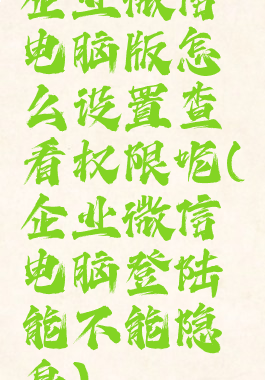 企业微信
电脑版怎
么设置查
看权限呢(
企业微信
电脑登陆
能不能隐
身)